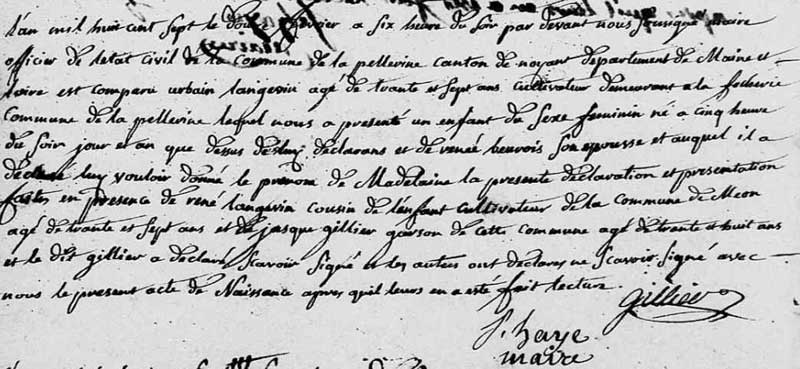 L'an mil huit cent sept le douze fevrier a six heure du soir par devant nous sousigné maire
officier de letat civil de la commune de la pellerine canton de noyant departement de Maine et
loire est comparu urbain langevin agé de trante et sept ans cultivateur demeurant a la
Commune de la pellerine lequel nous a presenté un enfant du sexe feminin né a cinq heure
du soir jour et an que dessus de luy declarans et de renée beuvois son epousse et auquel il a
declaré luy vouloir donné le prenom de Madelaine la presente declaration et presentation
faites en presence de rené langevin cousin de l'enfant cultivateur de la commune de Meon
agé de trante et sept ans et de jasque gillier garson de cette commune agé de trante et huit ans
et le dit gillier a declaré scavoir signé et les autres ont declares ne scavoir signé avec
nous le present acte de Naissance apres quil leurs en a esté fait lecture.
gillier
haye
maire